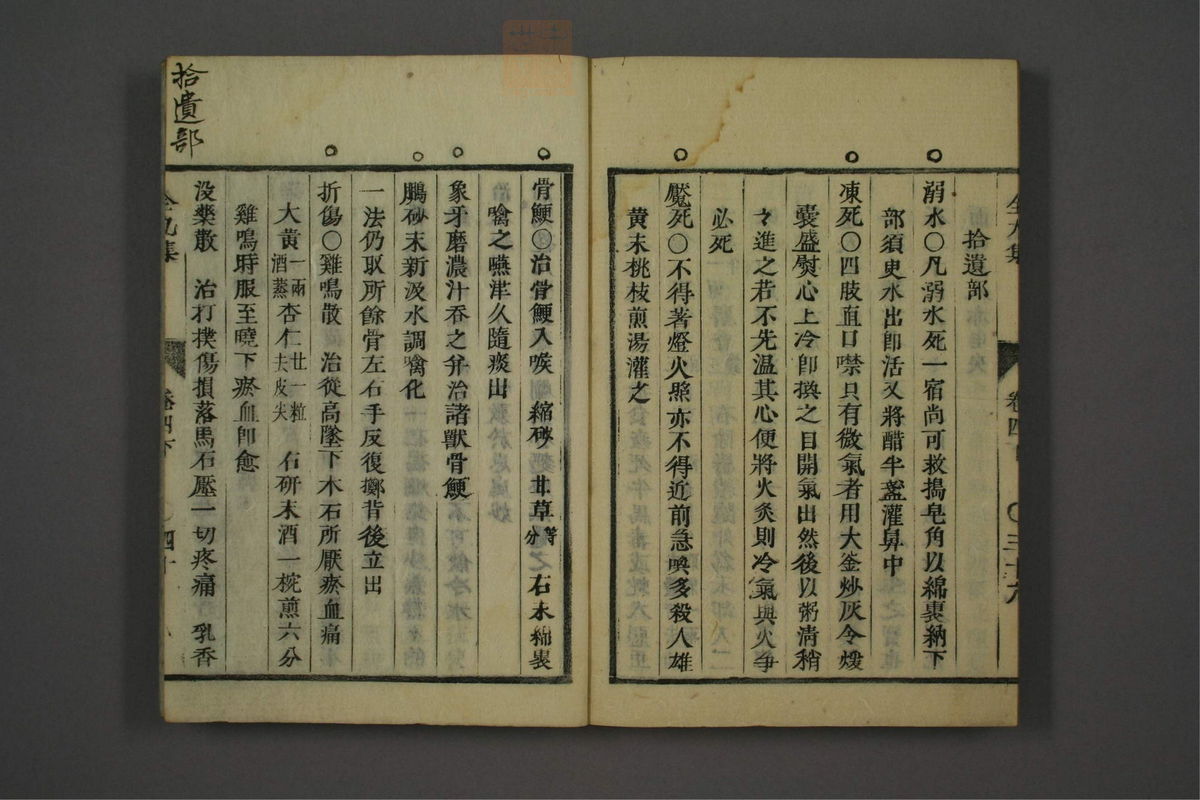 拾遺部
溺水〇凡溺水死一宿尚可救搗皂角以綿裹納下
部須臾水出卽活又將醋半盞灌鼻中
凍死〇四肢直口噤只有微氣者用大釜炒灰令煖
囊盛熨心上冷卽換之目開氣出然後以粥淸稍
々進之若不先温其心便將火灸則冷氣與火爭
必死
魘死〇不得著燈火照亦不得近前急喚多殺人雄
黄末桃枝煎湯灌之
拾遺部
骨鯁〇治骨鯁入喉 縮砂 甘草等分 右末綿裹
噙之嚥津久隨痰出
象牙磨濃汁吞之幷治諸獸骨鯁
鵬砂末新汲水調噙化
一法仍取所餘骨左右手反復擲背後立出
折傷〇雞鳴散 治從高墜下木石所厭瘀血痛
大黄一兩酒蒸杏仁廿一粒去皮尖 右研末酒一椀煎六分
雞鳴時服至曉下瘀血卽愈
没藥散 治打撲傷損落馬石壓一切疼痛 乳香
全九集
卷四
四十